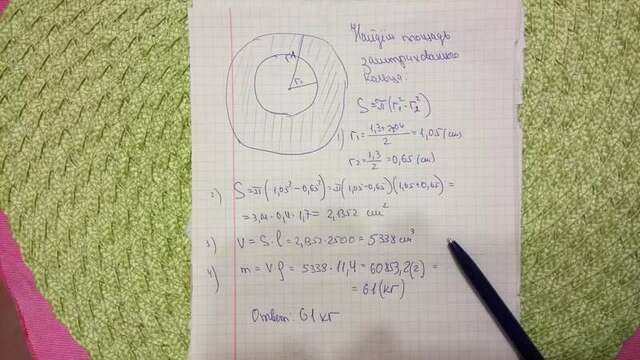 Найдем площадь
заштрихованного
кольца
S=π(r₁²-r₂²)
1) r₁ = 1,3+2·0,4/2 = 1,05 (см)
r₂ = 1,3/2 = 0,65 (см)
2) S=π(1,05²-0,65²)=π(1,05-0,65)(1,05+0,65)=
=3,14·0,4·1,7= 2,1352 см²
3) V = S·l = 2,1352·2500 = 5338 см³
4) m = Vρ = 5338·11,4 = 60853,2(г) =
= 61 (кг)
Ответ: 61 кг